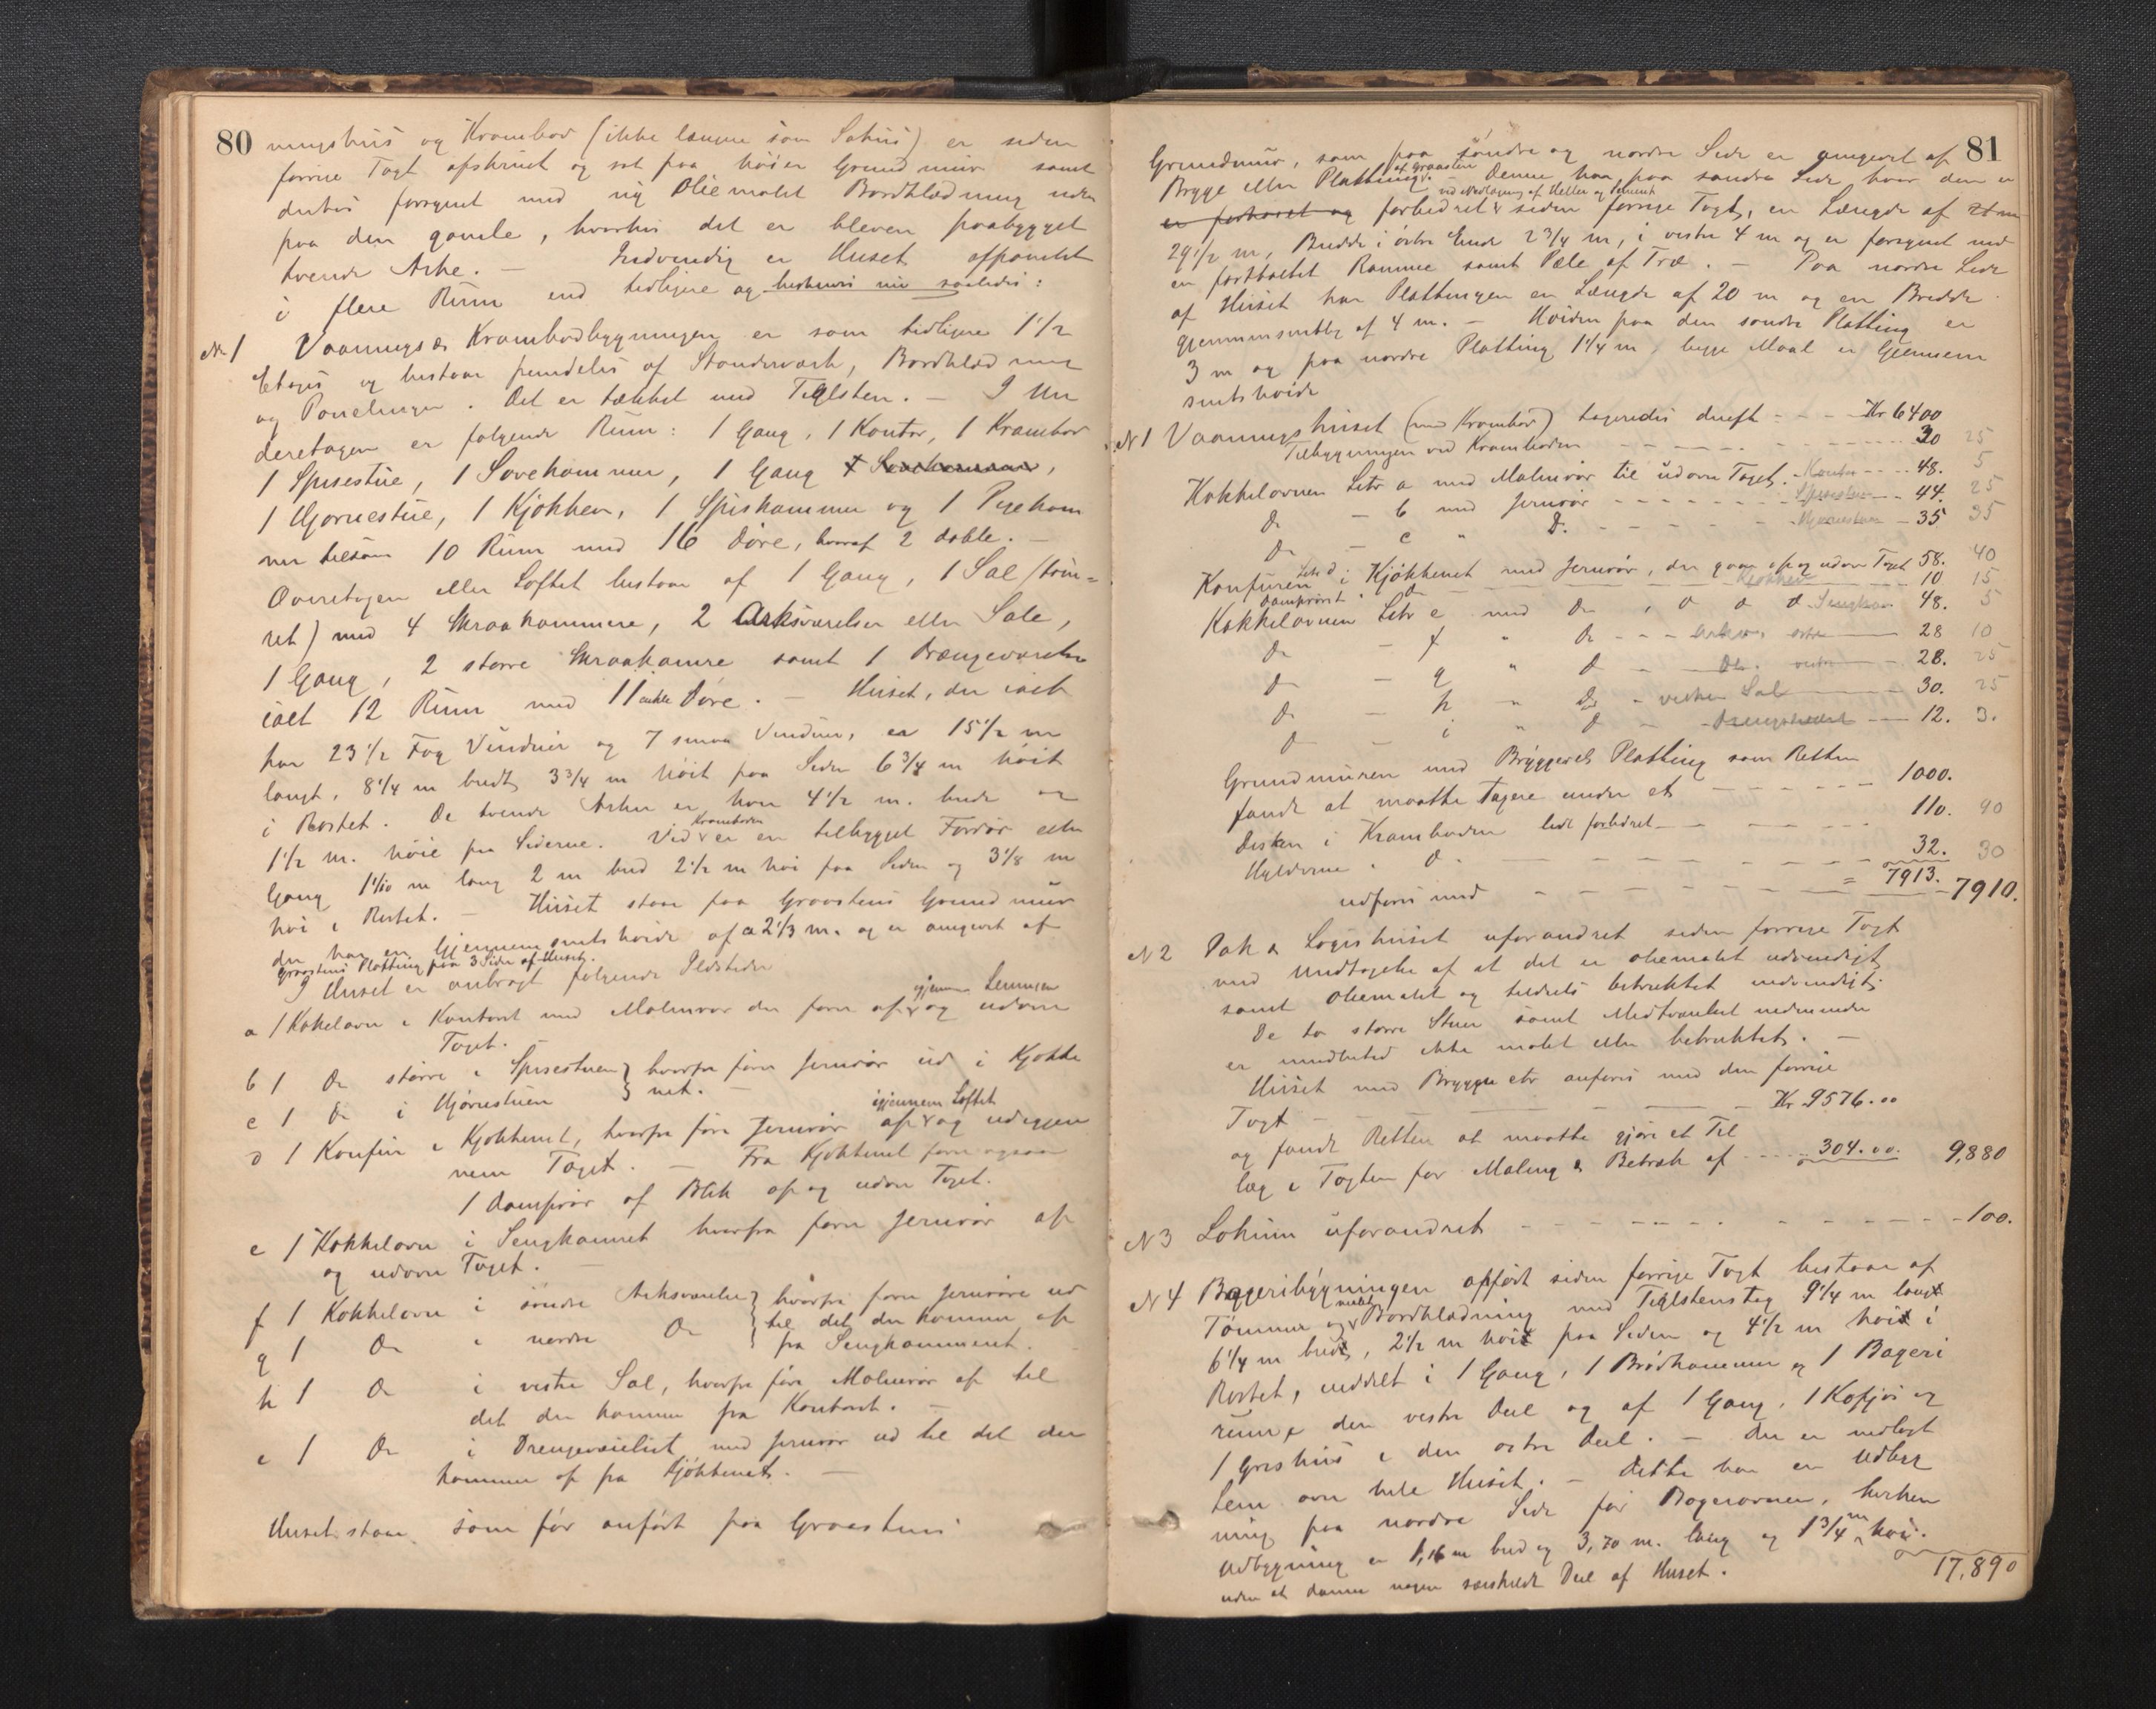 80
ningshus og Krambod (ikke længere som Sahus) er siden
forrige Taxt afskruet og sat paa høiere Grundmuur samt
derhos forsynet med ny Oliemalet Bordklædning uden
paa den gamle, hvorhos det er bleven paabygget
tvende Arke. — Indvendig er Huset afpanelet
i flere Rum end tidligere og beskrives nu saaledes:
No 1 Vaanings & Krambodbygningen er som tidligere 1 1/2
Etages og bestaar fremdeles af Standerværk, Bordklædning
og Panelinger. Det er tækket med Teglsten. — I Un
deretagen er følgende Rum: 1 Gang, 1 Kontor, 1 Krambod
1 Spisestue, 1 Sovekammer, 1 Gang,
1 Hjørnestue, 1 Kjøkken, 1 Spiskammer og 1 Pigekam
mer tilsam 10 Rum med 16 Døre, hvoraf 2 doble. —
Overetagen eller Loftet bestaar af 1 Gang, 1 Sal (tøm=
ret) med 4 Skraakammere, 2 Arksværelser eller Sale,
1 Gang, 2 større Skraakamre samt 1 Drængeværelse
ialt 12 Rum med 11 enkle Døre. — Huset, der ialt
har 23 1/2 Fag Vinduer og 7 smaa Vinduer, er 15 1/2 m
langt, 8 1/4 m bredt, 3 3/4 m høit paa Siden 6 3/4 m høit
i Røstet. De tvende Arker er hver 4 1/2 m. brede og
1 1/2 m. høie paa Siderne. Ved Kramboden er en tilbygget Fordør eller
Gang 1 1/10 m lang 2 m bred 2 1/2 m høi paa Siden og 3 1/8 m
høi i Røstet. — Huset staar paa Graastens Grundmuur
der har en Gjennemsnitshøide af a 2 1/3 m. og er omgivet af
Graastens Platting paa 3 Sider af Huset.
I Huset er anbragt følgende Ildsteder
a 1 Kakelovn i Kontoret med Malmrør der fører op igjennem Lemmen og udover
Taget.
b 1 Do større i Spisestuen } hvorfra fører Jernrør ud i Kjøkke
c 1 Do i Hjørnestuen } net. —
d 1 Komfur i Kjøkkenet, hvorfra fører Jernrør op igjennem Loftet og udigjen
nem Taget. — Fra Kjøkkenet fører ogsaa
1 Damprør af Blik op og udover Taget.
e 1 Kakkelovn i Sengkamret hvorfra fører Jernrør op
og udover Taget. —
f 1 Kakkelovn i søndre Arksværelse } hvorfra fører Jernrøre ud
g 1 Do i nordre Do } til det der kommer op
fra Sengkammeret.
h 1 Do i vestre Sal, hvorfra føre Malmrør op til
det der kommer fra Kontoret. —
i 1 Do i Drengeværelset med Jernrør ud til det der
kommer op fra Kjøkkenet. —
Huset staar som før anført paa Graastens
81
Grundmur, som paa søndre og nordre Side er omgivet af
Brygge eller Platting af Graasten. Denne har paa søndre Side hvor den er
er forhøiet og forbedret ved Nedlægning af Heller og Cement siden forrige Taxt, en Længde af
29 1/2 m, Bredde i østre Ende 2 3/4 m, i vestre 4 m og er forsynet med
en fortboltet Ramme samt Pæle af Træ. — Paa nordre Side
af Huset har Plattingen en Længde af 20 m og en Bredde
gjennemsnitlig af 4 m. — Høiden paa den søndre Platting er
3 m og paa nordre Platting 1 1/4 m, begge Maal er Gjennem
snitshøide
No 1 Vaaningshuset (med Krambod) taxeredes dreft - - - Kr 6400
Tilbygningen ved Kramboden - - - 30 25
Kakkelovnen Litr a med Malmrør til udover Taget. Kontor - - 48. 5
Do - b med Jernrør - - - Spisestuen - - 44. 25
Do - c " Do. - - - Hjørnestuen - 35. 35
Komfuren Litr d i Kjøkkenet med Jernrør, der gaar op og udover Taget 58. 40
Damprøret " Do - Kjøkken - 10 15
Kakkelovnen Litr e med Do, d d d Sengkam 48. 5
Do - f " Do - - - 28 10
Do - g " Do - Do. - 28. 25
Do - h " Do - vestre Sal - 30. 25
Do - i " Do - Drengeværelset - 12. 3.
Grundmuren med Bryggeriets Platting som Retten
fandt at maatte taxere under et - - - 1000.
Disken i Kramboden lidt forbedret - - - 110. 90
Hylderne " Do. - - - 32. 30
= 7913.
udføres med - - - 7910.
No 2 Pak & Logishuset uforandret siden forrige Taxt
med Undtagelse af at det er oliemalet udvendigt,
samt oliemalet og tildels betrukket indvendigt.
De to større Stuer samt Midtværelset nedenunder
er imidlertid ikke malet eller betrukket. —
Huset med Brygge etc anføres med den forrige
Taxt - - - Kr 9576.00
og fandt Retten at maatte gjøre et Til
læg i Taxten for Maling & Betræk af - - - 304.00. 9,880
No 3 Lokum uforandret - - - 100.
No 4 Bageribygningen opført siden forrige Taxt bestaar af
Tømmer og malet Bordklædning med Teglstenstag 9 1/4 m langt
6 1/4 m bredt, 2 1/2 m høit paa Siden og 4 1/2 m høit i
Røstet, inddelt i 1 Gang, 1 Brødkammer og 1 Bageri
rum i den vestre Deel og af 1 Gang, 1 Kofjøs og
1 Grishus i den østre Deel. — Der er nedlagt
Lem over hele Huset. — Dette har en Udbyg
ning paa nordre Side for Bagerovnen, hvilken
Udbygning er 1,16 m bred og 3,70 m. lang og 1 3/4 m høi.
uden at danne nogen særskildt Deel af Huset.
17,890